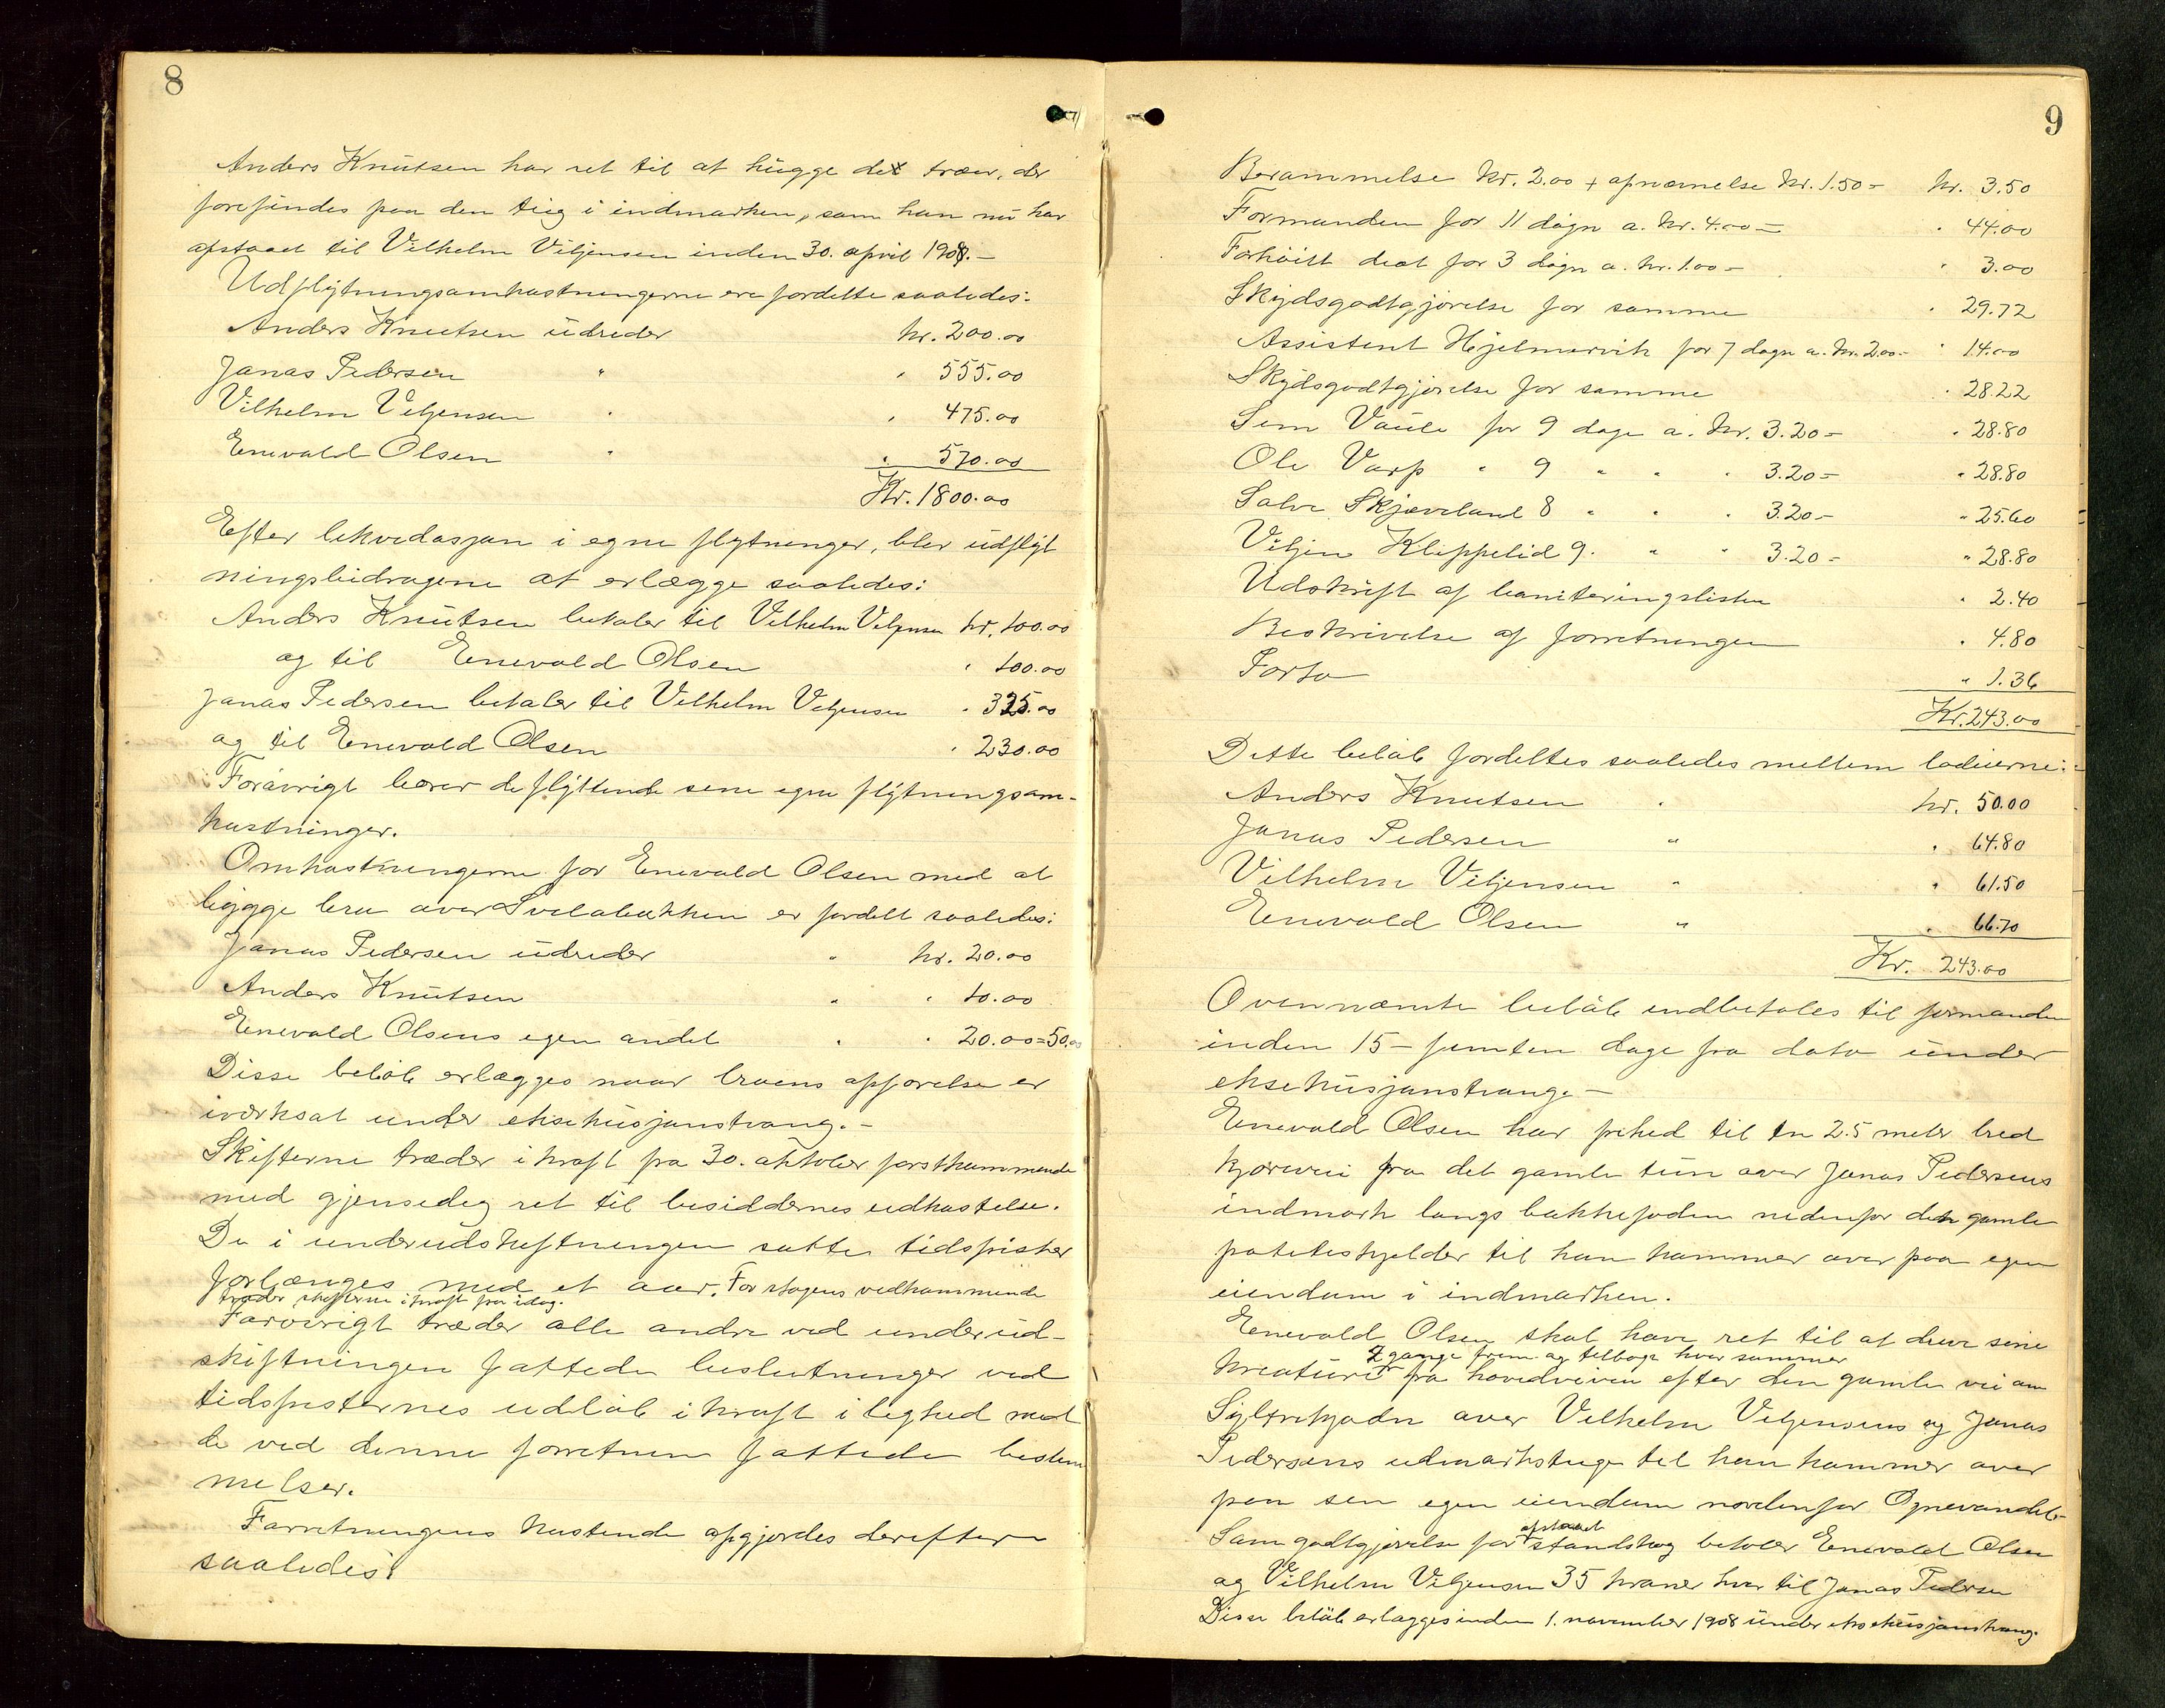 8
Anders Knutsen har ret til at hugge de trær, der
forefindes paa den teig i indmarken, som han nu har
afstaaet til Vilhelm Viljensen inden 30. april 1908.-
Udflytningsomkostningerne ere fordelte saaledes:
Anders Knutsen udreder kr. 200.00
Jonas Pedersen " " 555.00
Vilhelm Viljensen " " 475.00
Enevald Olsen " " 570.00
Kr. 1800.00
Efter likvidasjon i egne flytninger, blev udflyt
ningsbidragene at erlægge saaledes:
Anders Knutsen betaler til Vilhelm Viljensen kr. 100.00
og til Enevald Olsen " 100.00
Jonas Pedersen betaler til Vilhelm Viljensen " 325.00
og til Enevald Olsen " 230.00
Forøvrigt bærer de flyttende sine egne flytningsom-
kostninger.
Omkostningerne for Enevald Olsen med at
bygge bru over Svilabækken er fordelt saaledes:
Jonas Pedersen udreder " kr. 20.00
Anders Knutsen " " 10.00
Enevald Olsens egen andel " " 20.00=50.00
Disse beløb erlægges naar bruens opførelse er
iverksat under eksekusjonstvang.-
Skifterne træder i kraft fra 30. oktober førstkommende
med gjensidig ret til besiddernes udkastelse.
De i underudskiftningen satte tidsfrister
forlænges med et aar. For skogens vedkommende
træder skifterne i kraft fra idag.
Forøvrigt træder alle andre ved underud-
skiftningen fattede beslutninger ved
tidsfristernes udløb i kraft i lighed med
de ved denne forretnin fattede bestem
melser.
Forretningens kostende opgjordes derefter
saaledes:
9
Berammelse kr. 2.00 + opnævnelse kr. 1.50 = kr. 3.50
Formanden for 11 døgn a. kr. 4.00 = " 44.00
Forhöiet diæt for 3 døgn a. kr. 1.00 = " 3.00
Skydsgodtgjørelse for samme " 29.72
Assistent Hjelmervik for 7 dage a. kr. 2.00 = " 14.00
Skydsgodtgjørelse for samme " 28.22
Sem Vaule for 9 dage a. kr. 3.20 = " 28.80
Ole Varp " 9 " " " 3.20 = " 28.80
Salve Skjæveland 8 " " " 3.20 = " 25.60
Viljen Kleppelid 9. " " 3.20 = " 28.80
Udskrift af boniteringslisten " 2.40
Beskrivelse af forretningen " 4.80
Porto " 1.36
Kr. 243.00
Dette beløb fordeltes saaledes mellem lodeierne:
Anders Knutsen " kr. 50.00
Jonas Pedersen " " 64.80
Vilhelm Viljensen " " 61.50
Enevald Olsen " " 66.70
Kr. 243.00
Ovennævnte beløb indbetales til formanden
inden 15 - femten dage fra dato under
eksekusjonstvang.-
Enevald Olsen har frihed til en 2.5 meter bred
kjørevei fra det gamle tun over Jonas Pedersens
indmark langs bakkefoden nedenfor den gamle
poteteskjelder til han kommer over paa egen
eiendom i indmarken.
Enevald Olsen skal have ret til at drive sine
2 gange frem og tilbage hver sommer
kreature fra hovedveien efter den gamle vei om
over Vilhelm Viljensens og Jonas
Pedersens udmarksteige til han kommer over
paa sin egen eiendom nordenfor
afstaaet
Som godtgjørelse for standskog betaler Enevald Olsen
og Vilhelm Viljensen 35 kroner hver til Jonas Pedersen
Disse beløb erlægges inden 1. november 1908 under eksekusjonstvang.